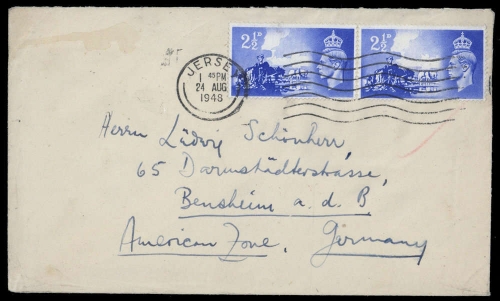 2½D 2½D
JERSEY
1 45 PM
24 AUG
1948
Herrn Lüdwig Schönherr,
65 Darmstädterstrasse,
Bensheim a.d. B
American Zone, Germany